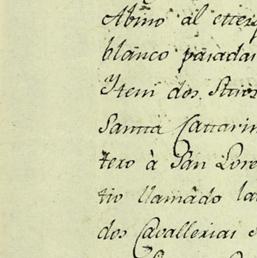 Abino al
blanco paradas
Ytem dos
Santta Cattarin
tero à San Lore
tio llamado la
dos Cavallerias